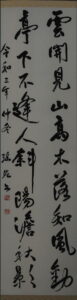 雲開見山高木落知風動
亭下不逢人斜陽澹秋影
令和二年仲冬